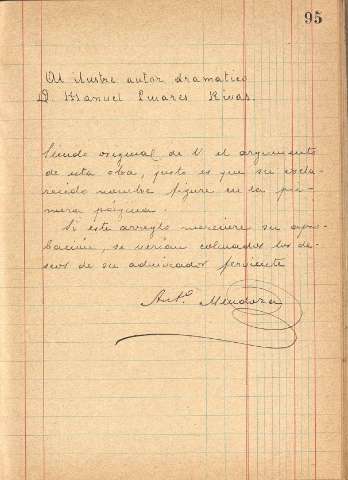 95
Al ilustre autor dramatico
D. Manuel Linares Rivas.
Siendo original de V. el argumento
de esta obra, justo es que su escla-
recido nombre figure en la pri-
mera página.
Si este arreglo mereciere su apro-
bacion, se verian colmados los de-
seos de su admirador ferviente
Ant.º Mendoza